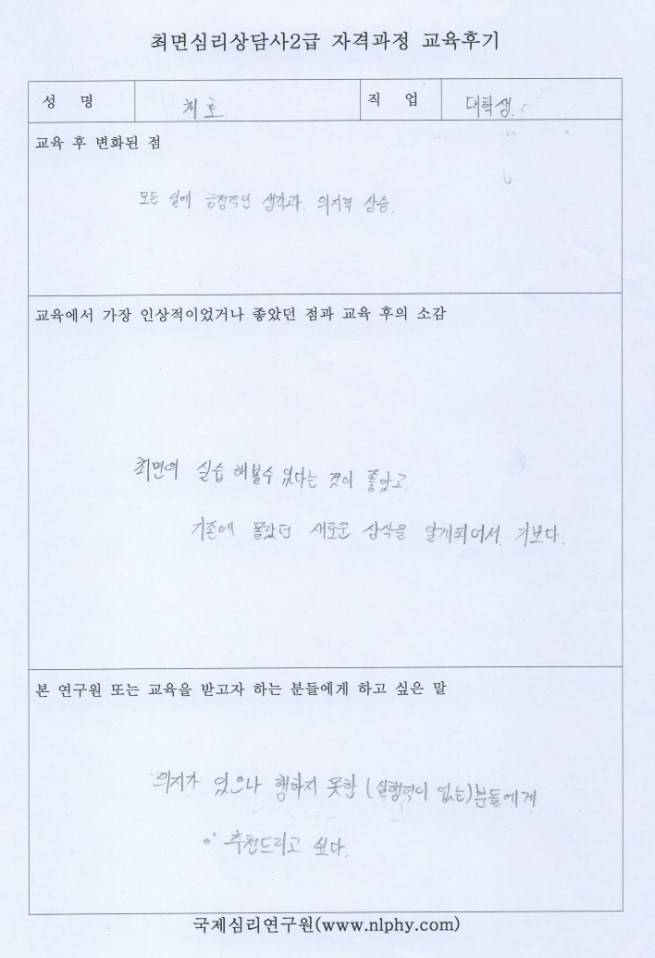 최면심리상담사2급 자격과정 교육후기
성 명 최호 직 업 대학생.
교육 후 변화된 점
모든 일에 긍정적인 생각과. 의지력 상승.
교육에서 가장 인상적이었거나 좋았던 점과 교육 후의 소감
최면의 실습 해볼수 있다는 것이 좋았고
기존에 몰랐던 새로운 상식을 알게되어서. 기쁘다.
본 연구원 또는 교육을 받고자 하는 분들에게 하고 싶은 말
의지가 있으나 행하지 못한 (실행력이 없는)분들에게
추천드리고 싶다.
국제심리연구원(www.nlphy.com)